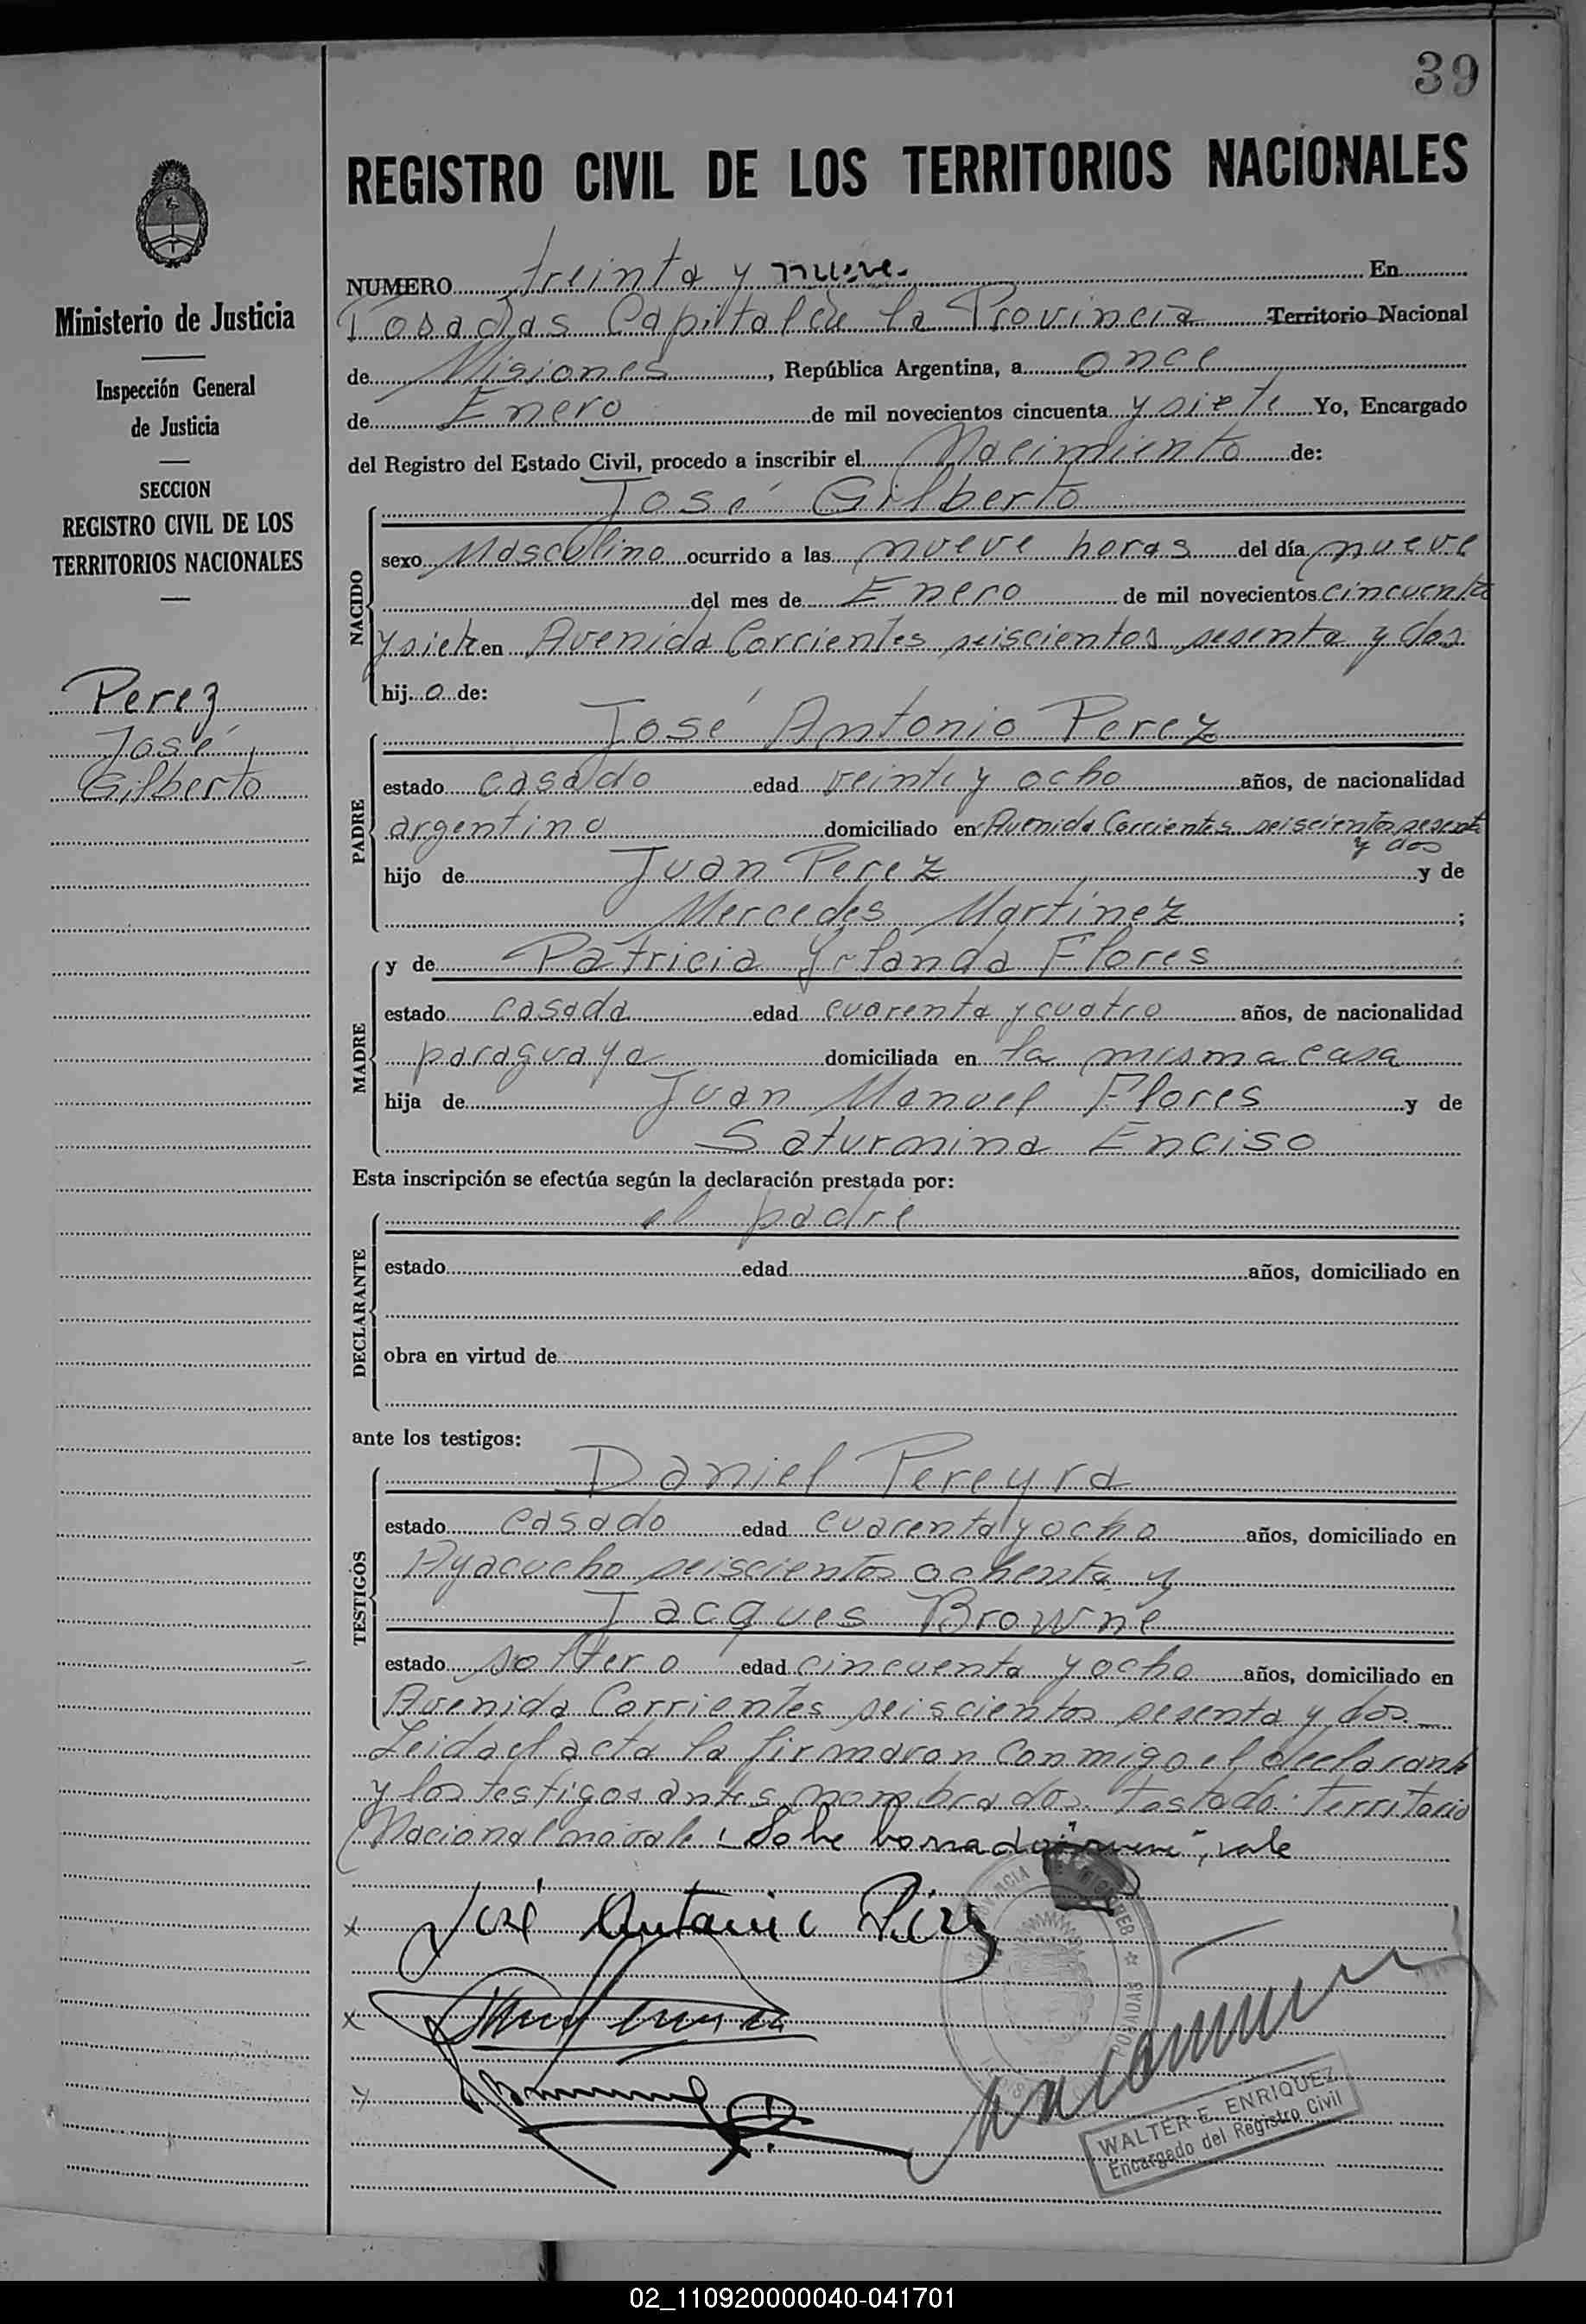 39
REGISTRO CIVIL DE LOS TERRITORIOS NACIONALES
Ministerio de Justicia
Inspección General
de Justicia
SECCION
REGISTRO CIVIL DE LOS
TERRITORIOS NACIONALES
Perez
José
Gilberto
NUMERO treinta y nueve. En
Posadas Capital de la Provincia Territorio Nacional
de Misiones, República Argentina, a once
de Enero de mil novecientos cincuenta y siete Yo, Encargado
del Registro del Estado Civil, procedo a inscribir el Nacimiento de:
José Gilberto
NACIDO
sexo Masculino ocurrido a las nueve horas del día nueve
del mes de Enero de mil novecientos cincuenta
y siete en Avenida Corrientes seiscientos sesenta y dos
hij o de:
José Antonio Perez
PADRE
estado casado edad veinte y ocho años, de nacionalidad
argentino domiciliado en Avenida Corrientes seiscientos sesenta
y dos
hijo de Juan Perez y de
Mercedes Martínez;
MADRE
y de Patricia Yolanda Flores
estado casada edad cuarenta y cuatro años, de nacionalidad
paraguaya domiciliada en la misma casa
hija de Juan Manuel Flores y de
Saturnina Enciso
Esta inscripción se efectúa según la declaración prestada por:
el padre
DECLARANTE
estado edad años, domiciliado en
obra en virtud de
ante los testigos:
Daniel Pereyra
TESTIGOS
estado casado edad cuarenta y ocho años, domiciliado en
Ayacucho seiscientos ochenta y
Jacques Browne
estado soltero edad cincuenta y ocho años, domiciliado en
Avenida Corrientes seiscientos sesenta y dos.—
Leida el acta la firmaron conmigo el declarante
y los testigos antes nombrados. Testado: Territorio
Nacional no vale: Sobre borrado "nueve", vale
x José Antonio Pérez
x
POSADAS
WALTER E. ENRIQUEZ
Encargado del Registro Civil
02_110920000040-041701